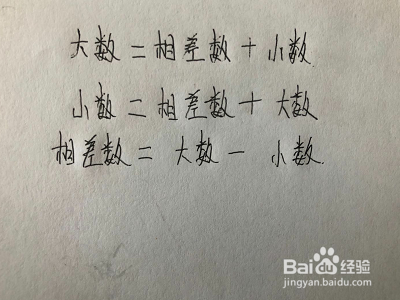 大数=相差数+小数
小数=相差数+大数
相差数=大数-小数
Baidu经验
jingyan.baidu.com